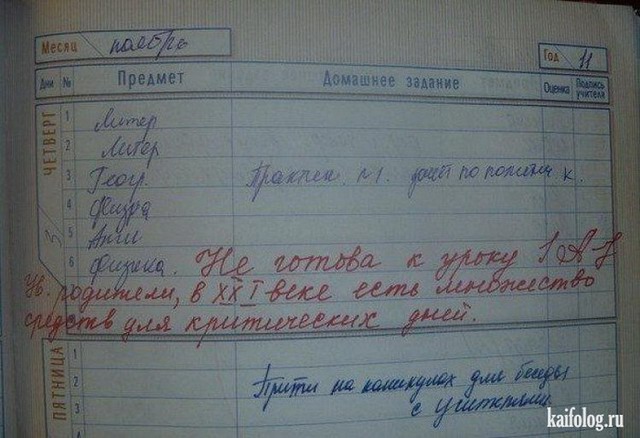 Месяц ноябрь
Год 11
Дни № Предмет Домашнее задание Оценка Подпись учителя
ЧЕТВЕРГ
3
1 Литер
2 Литер
3 Геогр. Практич.
4 Физра
5 Англ
6 Физика. Не готова к уроку
Ув. родители, в XXI веке есть множество
средств для критических дней.
ПЯТНИЦА
1
2 Прийти на каникулах для беседы
3 с учителями.
kaifolog.ru